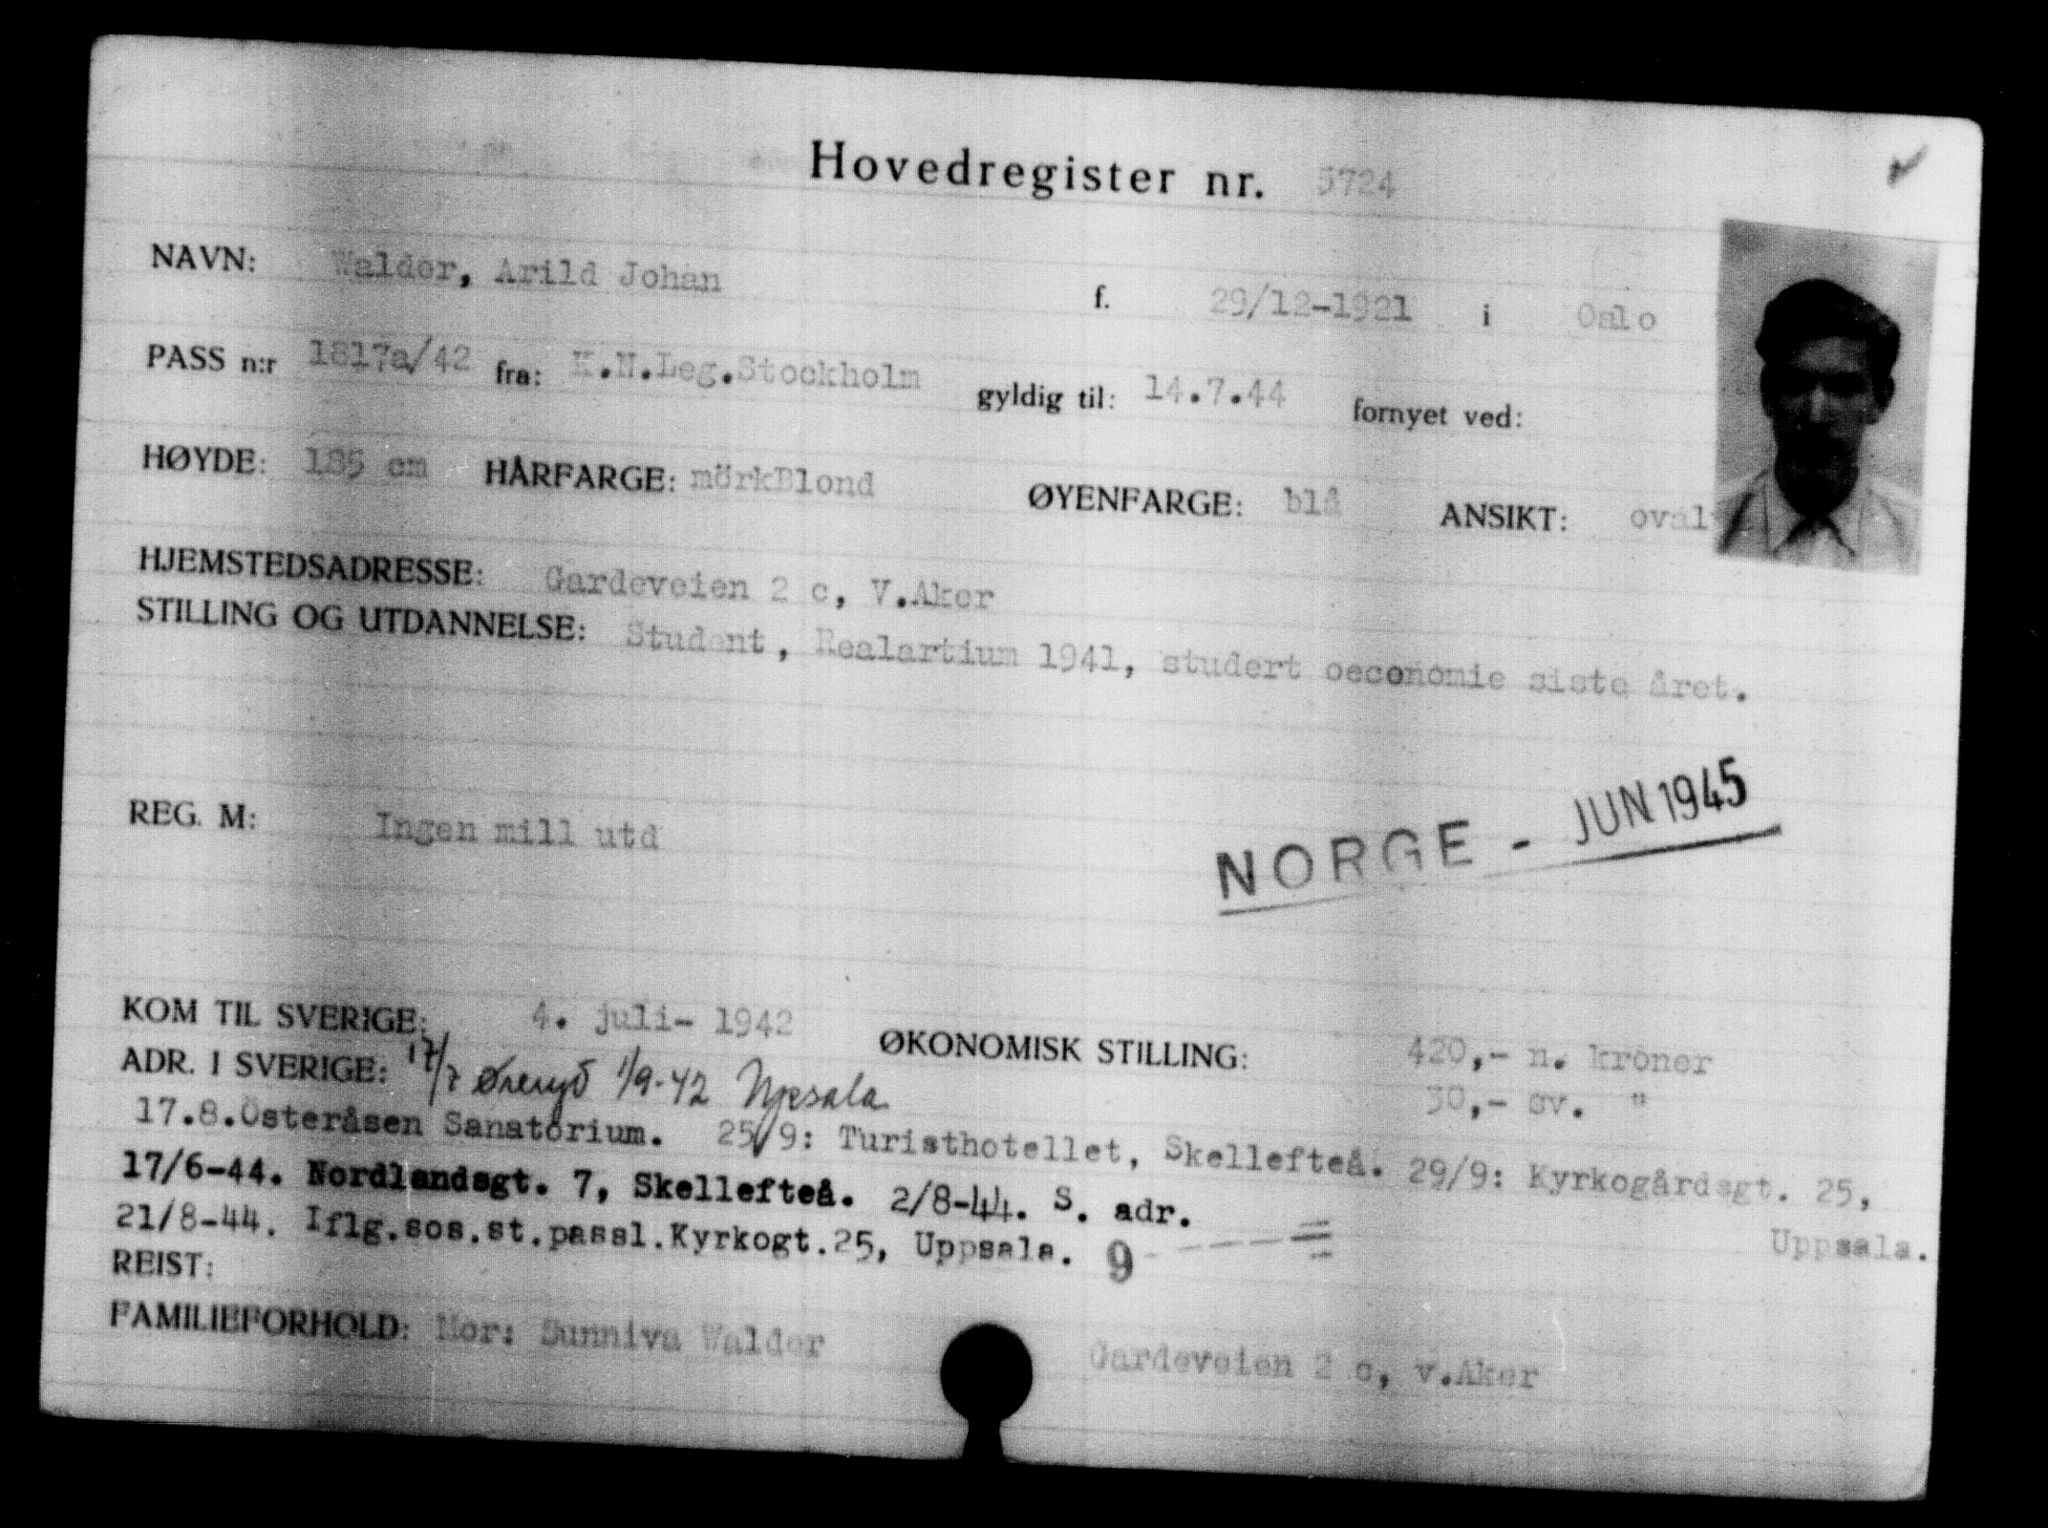 Hovedregister nr. 5724
NAVN: Walder, Arild Johan f. 29/12-1921 i Oslo
PASS n:r 1817a/42 fra: K.N.Leg.Stockholm gyldig til: 14.7.44 fornyet ved:
HØYDE: 185 cm HÅRFARGE: mörkBlond ØYENFARGE: blå ANSIKT: oval
HJEMSTEDSADRESSE: Gardeveien 2 c, V.Aker
STILLING OG UTDANNELSE: Student, Realartium 1941, studert oeconomie siste året.
REG. M: Ingen mill utd
NORGE - JUN 1945
KOM TIL SVERIGE: 4. juli- 1942 ØKONOMISK STILLING: 420,- n. kroner
ADR. I SVERIGE: 17/7 Øreryd 1/9-42 Uppsala 30,- sv. "
17.8.Österåsen Sanatorium. 25/9: Turisthotellet, Skellefteå. 29/9: Kyrkogårdsgt. 25,
17/6-44. Nordlandsgt. 7, Skellefteå. 2/8-44. S. adr. Uppsala.
21/8-44. Iflg.sos.st.passl.Kyrkogt.25, Uppsala. 9 - - - - =
REIST:
FAMILIEFORHOLD: Mor: Sunniva Walder Gardeveien 2 c, v.Aker